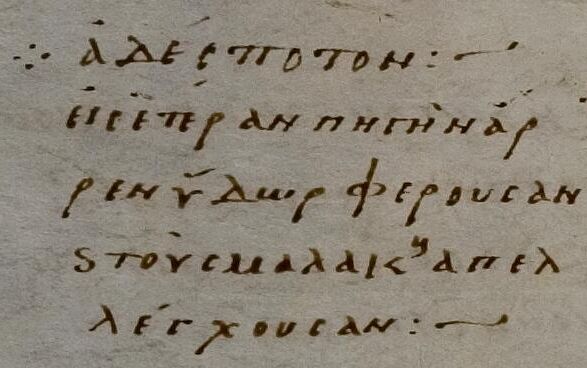 ἀδέσποτον:
εἰς ἑτέραν πηγὴν ἄρ
ρεν ὕδωρ φέρουσαν
ϛ τοὺς μαλακ ἀπελ
λέγχουσαν: